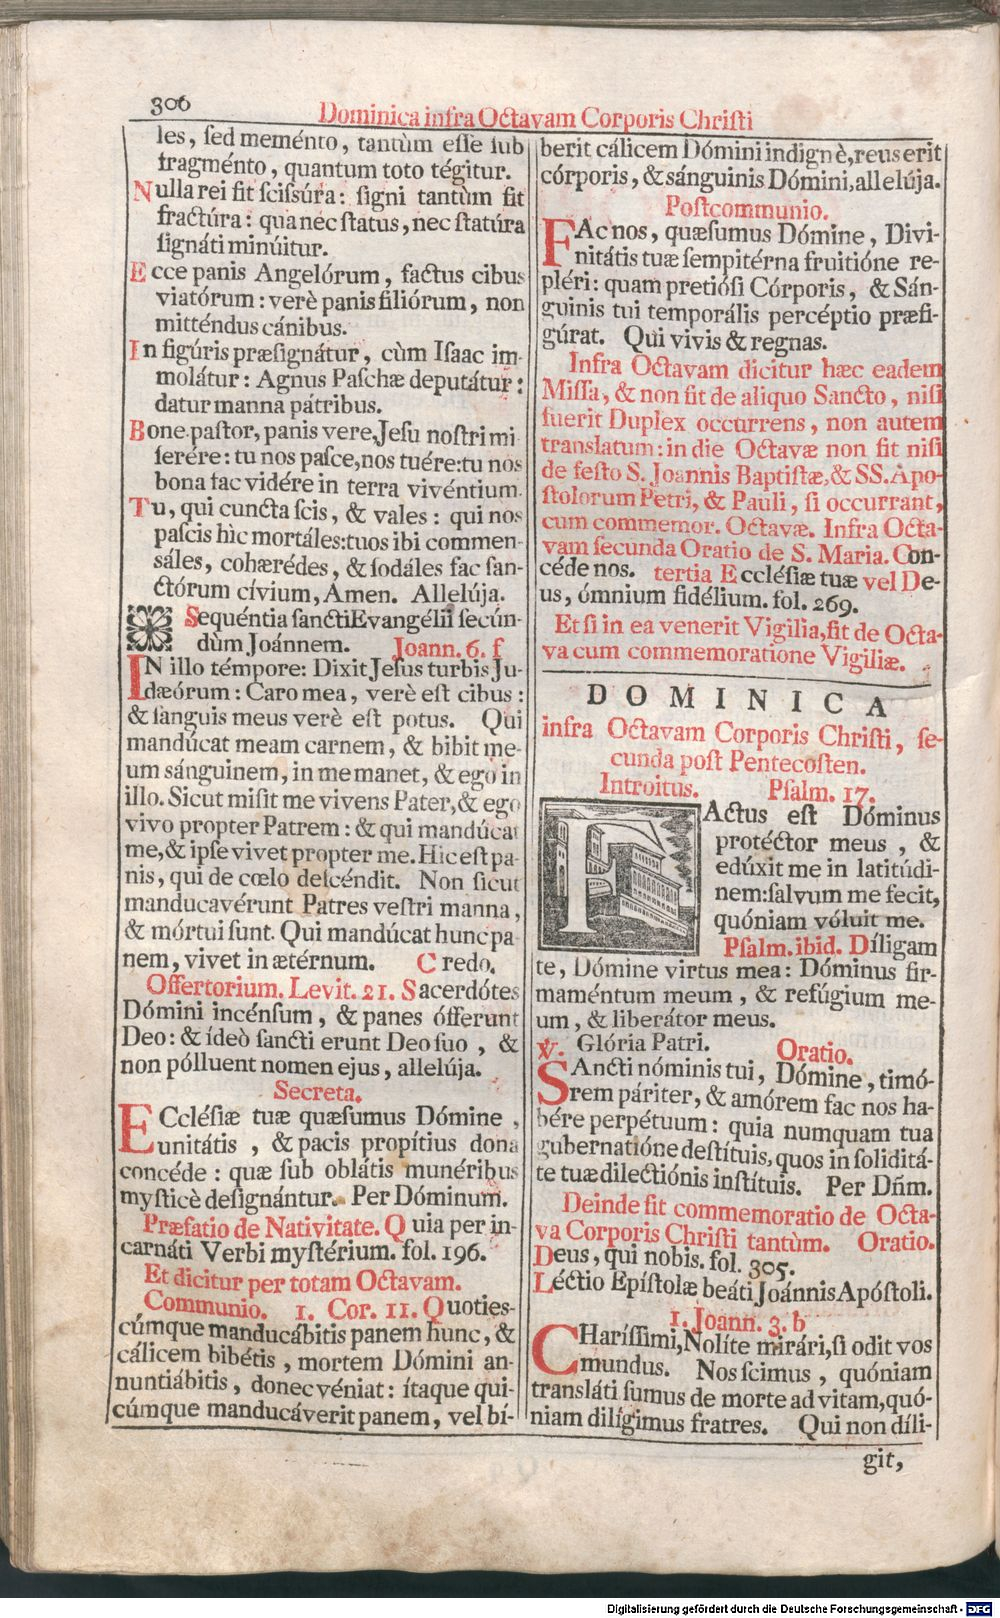 306
Dominica infra Octavam Corporis Christi
les, sed meménto, tantùm esse sub
fragménto, quantum toto tégitur.
Nulla rei fit scissúra: signi tantùm fit
fractúra: qua nec status, nec statúra
signáti minúitur.
Ecce panis Angelórum, factus cibus
viatórum: verè panis filiórum, non
mitténdus cánibus.
In figúris præsignátur, cùm Isaac im-
molátur: Agnus Paschæ deputátur:
datur manna pátribus.
Bone pastor, panis vere, Jesu nostri mi-
serére: tu nos pasce, nos tuére: tu nos
bona fac vidére in terra vivéntium.
Tu, qui cuncta scis, & vales: qui nos
pascis hìc mortáles: tuos ibi commen-
sáles, cohærédes, & sodáles fac san-
ctórum cívium, Amen. Allelúja.
Sequéntia sancti Evangélii secún-
dùm Joánnem. Joann. 6. f
IN illo témpore: Dixit Jesus turbis Ju-
dæórum: Caro mea, verè est cibus:
& sanguis meus verè est potus. Qui
mandúcat meam carnem, & bibit me-
um sánguinem, in me manet, & ego in
illo. Sicut misit me vivens Pater, & ego
vivo propter Patrem: & qui mandúcat
me, & ipse vivet propter me. Hic est pa-
nis, qui de cœlo descéndit. Non sicut
manducavérunt Patres vestri manna,
& mórtui sunt. Qui mandúcat hunc pa-
nem, vivet in ætérnum. Credo.
Offertorium. Levit. 21. Sacerdótes
Dómini incénsum, & panes ófferunt
Deo: & ídeò sancti erunt Deo suo, &
non pólluent nomen ejus, allelúja.
Secreta.
ECclésiæ tuæ quæsumus Dómine,
unitátis, & pacis propítius dona
concéde: quæ sub oblátis munéribus
mysticè designántur. Per Dóminum.
Præfatio de Nativitate. Quia per in-
carnáti Verbi mystérium. fol. 196.
Et dicitur per totam Octavam.
Communio. 1. Cor. 11. Quoties-
cúmque manducábitis panem hunc, &
cálicem bibétis, mortem Dómini an-
nuntiábitis, donec véniat: ítaque qui-
cúmque manducáverit panem, vel bí-
berit cálicem Dómini indignè, reus erit
córporis, & sánguinis Dómini, allelúja.
Postcommunio.
FAc nos, quæsumus Dómine, Divi-
nitátis tuæ sempitérna fruitióne re-
pléri: quam pretiósi Córporis, & Sán-
guinis tui temporális percéptio præfi-
gúrat. Qui vivis & regnas.
Infra Octavam dicitur hæc eadem
Missa, & non fit de aliquo Sancto, nisi
fuerit Duplex occurrens, non autem
translatum: in die Octavæ non fit nisi
de festo S. Joannis Baptistæ, & SS. Apo-
stolorum Petri, & Pauli, si occurrant,
cum commemor. Octavæ. Infra Octa-
vam secunda Oratio de S. Maria. Con-
céde nos. tertia Ecclésiæ tuæ vel De-
us, ómnium fidélium. fol. 269.
Et si in ea venerit Vigilia, fit de Octa-
va cum commemoratione Vigiliæ.
DOMINICA
infra Octavam Corporis Christi, se-
cunda post Pentecosten.
Introitus. Psalm. 17.
FActus est Dóminus
protéctor meus, &
edúxit me in latitúdi-
nem: salvum me fecit,
quóniam vóluit me.
Psalm. ibid. Díligam
te, Dómine virtus mea: Dóminus fir-
maméntum meum, & refúgium me-
um, & liberátor meus.
℣. Glória Patri. Oratio.
SAncti nóminis tui, Dómine, timó-
rem páriter, & amórem fac nos ha-
bére perpétuum: quia numquam tua
gubernatióne destítuis, quos in soliditá-
te tuæ dilectiónis instítuis. Per Dñm.
Deinde fit commemoratio de Octa-
va Corporis Christi tantùm. Oratio.
Deus, qui nobis. fol. 305.
Léctio Epístolæ beáti Joánnis Apóstoli.
1. Joann. 3. b
CHaríssimi, Nolíte mirári, si odit vos
mundus. Nos scimus, quóniam
transláti sumus de morte ad vitam, quó-
niam dilígimus fratres. Qui non díli-
git,
Digitalisierung gefördert durch die Deutsche Forschungsgemeinschaft - DFG